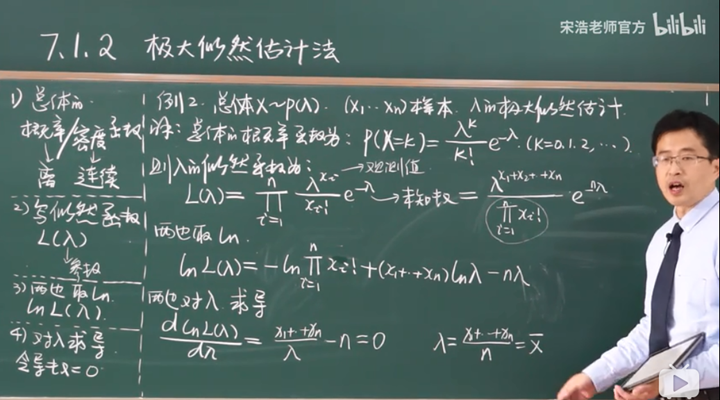 宋浩老师官方 bilibili
7.1.2 极大似然估计法
1) 总体的
概率/密度函数
↓ ↓
离 连续
2) 写似然函数
L(λ)
↓参数
3) 两边取ln
lnL(λ).
4) 对λ求导
令导数=0
例2. 总体X~P(λ). (x₁…xₙ)样本. λ的极大似然估计.
解: 总体的概率函数为: P(X=k)=\frac{λ^k}{k!}e^{-λ}. (k=0.1.2,…).
则λ的似然函数为: →观测值
L(λ)=\prod_{i=1}^{n}\frac{λ^{x_i}}{x_i!}e^{-λ}→未知数=\frac{λ^{x_1+x_2+…+x_n}}{\prod_{i=1}^{n}x_i!}e^{-nλ}
两边取ln.
lnL(λ)=-ln\prod_{i=1}^{n}x_i!+(x₁+…+xₙ)lnλ-nλ
两边对λ求导
\frac{dlnL(λ)}{dλ}=\frac{x_1+…+x_n}{λ}-n=0 λ=\frac{x_1+…+x_n}{n}=\bar{x}